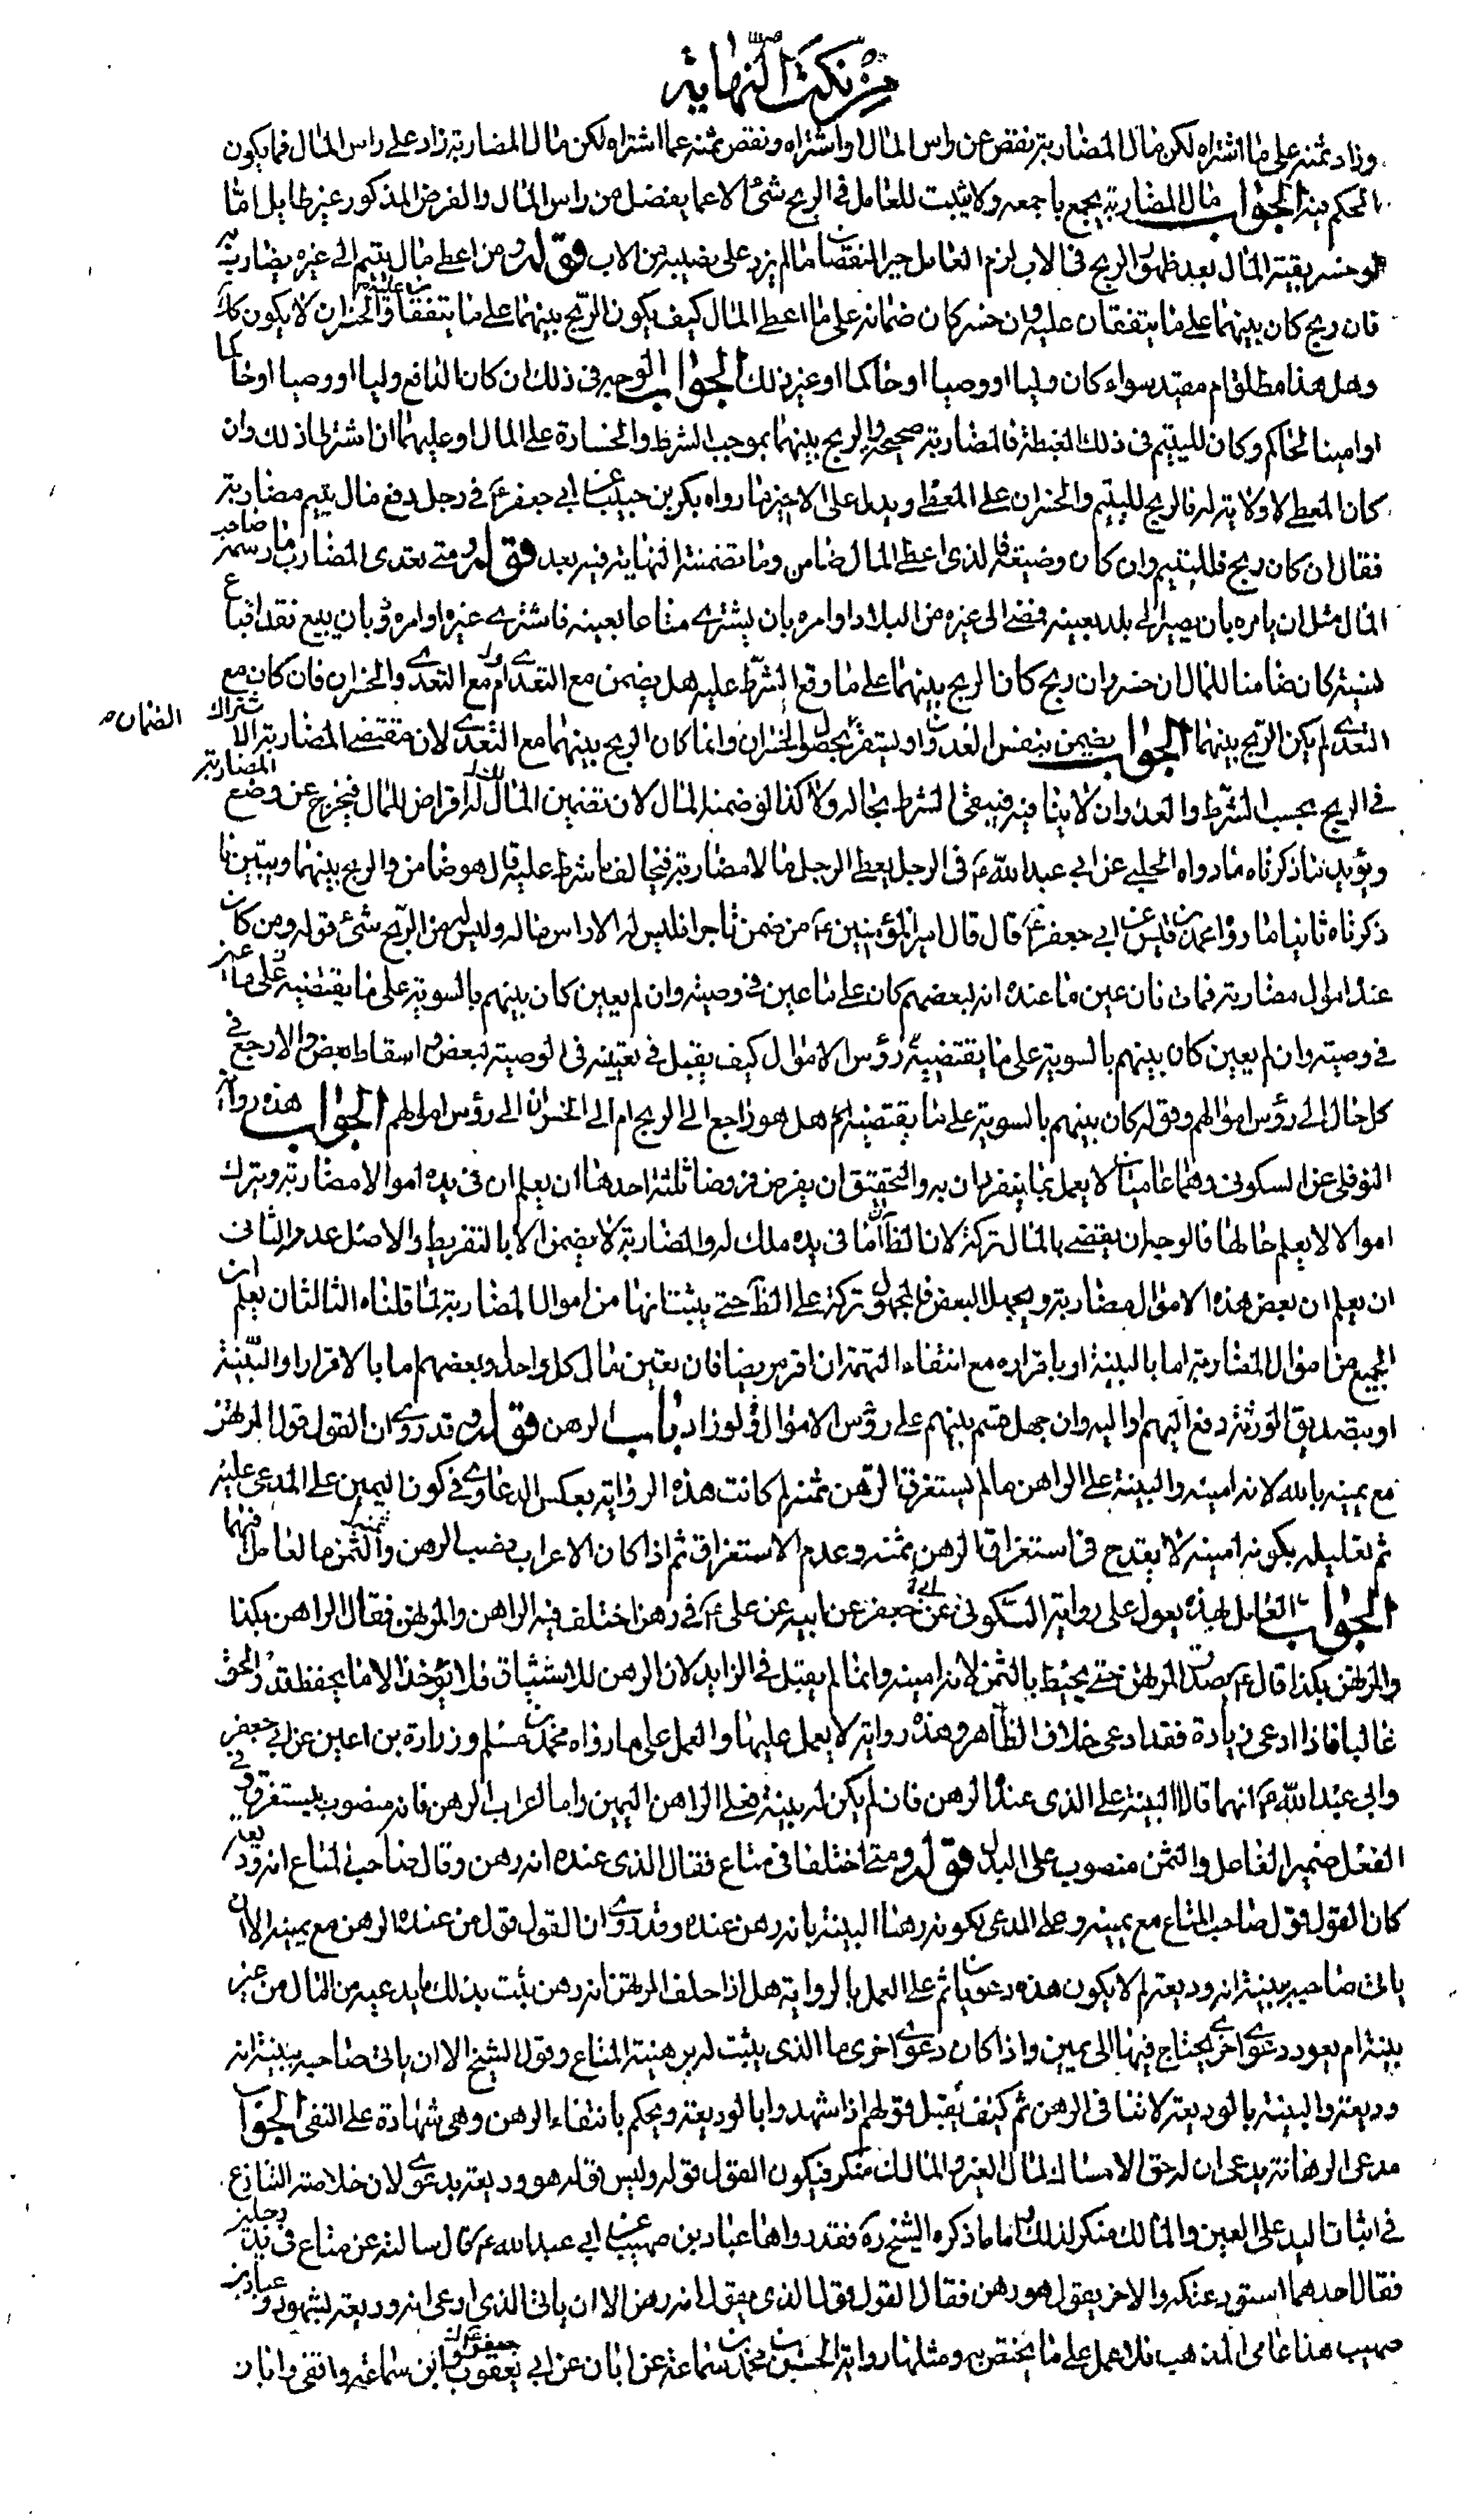 من نكت النهاية
وزاد ثمنه على ما اشتراه لكن مال المضاربة نقص عن راس المال او اشتراه ونقص ثمنه عما اشتراه لكن مال المضاربة زاد على راس المال فما يكون
الحكم فيه الجواب مال المضاربة يجمع باجمعه ولا يثبت للعامل في الربح شئ الا عما يفضل من راس المال والفرض المذكور غير طايل اما
لو خسر بقية المال بعد ظهور الربح في الاب لزم العامل جبر النقصان ما لم يزد على نصيبه من الاب قوله ره من اعطى مال يتيم الى غيره مضاربة
فان ربح كان بينهما على ما يتفقان عليه وان خسر كان ضمانه على ما اعطى المال كيف يكون الربح بينهما على ما يتفقان عليه والخسران لا يكون كك
وهل هذا مطلق ام مقيد سواء كان وليا او وصيا او حاكما او غير ذلك الجواب الوجه في ذلك ان كان الدافع وليا او وصيا او حاكما
او امينا لحاكم وكان لليتيم في ذلك الغبطة فالمضاربة صحيحة والربح بينهما بموجب الشرط والخسارة على المال او عليهما ان اشترطا ذلك وان
كان المعطى لا ولاية له فالربح لليتيم والخسران على المعطى ويدل على الاخير ما رواه بكر بن حبيب عن ابي جعفر ع في رجل دفع مال يتيم مضاربة
فقال ان كان ربح فلليتيم وان كان وضيعة فالذي اعطى المال ضامن وما تضمنته النهاية فيه بعد قوله ره متى تعدى المضارب ما رسمه صاحب
المال مثل ان يامره بان يصير الى بلد بعينه فمضى الى غيره من البلاد او امره بان يشترى متاعا بعينه فاشترى غيره او امره بان يبيع نقدا فباع
نسيئة كان ضامنا للمال ان خسر وان ربح كان الربح بينهما على ما وقع الشرط عليه هل يضمن مع التعدى ام مع التعدى والخسران فان كان مع
التعدى لم يكن الربح بينهما الجواب يضمن بنفس العدوان ويستقر بحصول الخسران وانما كان الربح بينهما مع التعدى لان مقتضى المضاربة الاشتراك
الضمان
في الربح بحسب الشرط والعدوان لا ينافيه فيبقى الشرط بحاله ولا كذا لو ضمنه المال لان تضمين المال له اقراض للمال فيخرج عن وضع المضاربة
ويؤيد ما ذكرناه ما رواه الحلبي عن ابي عبد الله ع في الرجل يعطى الرجل مالا مضاربة فيخالف ما شرط عليه قال هو ضامن والربح بينهما ويبين ما
ذكرناه ثانيا ما رواه محمد بن قيس عن ابي جعفر ع قال قال امير المؤمنين ع من ضمن تاجرا فليس له الا راس ماله وليس له من الربح شئ قوله ومن كان
عنده اموال مضاربة فمات فان عين ما عنده انه لبعضهم كان على ما عين في وصيته وان لم يعين كان بينهم بالسوية على ما يقتضيه
في وصيته وان لم يعين كان بينهم بالسوية على ما يقتضيه رؤس الاموال كيف يقبل في تعيينه في الوصية لبعض واسقاط بعض والا رجع في
كل حال الى رؤس اموالهم وقوله كان بينهم بالسوية على ما يقتضيه هل هو راجع الى الربح ام الى الخسران الى رؤس اموالهم الجواب هذه رواية
النوفلى عن السكونى وهما عاميان لا يعمل بما ينفردان به والتحقيق ان يفرض فروضا ثلثة احدها ان يعلم ان في يده اموالا مضاربة وترك
اموالا لا يعلم حالها فالوجه ان يقضى بالمال تركة لان الظاهر ان ما في يده ملك له والمضاربة لا يضمن الا بالتفريط والاصل عدمه الثانى
ان يعلم ان بعض هذه الاموال مضاربة ويجهل البعض فالمجهول تركة على الظاهر حتى يثبت انها من اموال المضاربة لما قلناه الثالث ان يعلم ان
الجميع من اموال المضاربة اما بالبينة او باقراره مع انتفاء التهمة ان اقر مريضا فان تعين مال كل واحد وبعضهم اما بالاقرار او البينة
او بتصديق الورثة دفع اليهم او اليه وان جهل قسم بينهم على رؤس الاموال ولو زاد باب الرهن قوله ره قد روى ان القول قول المرتهن
مع يمينه بالله لانه امينه والبينة على الراهن ما لم يستغرق الرهن ثمنه لم كانت هذه الرواية بعكس الدعاوى في كون اليمين على المدعى عليه
ثم تعليله بكونه امينه لا يقدح في استغراق الرهن ثمنه وعدم الاستغراق ثم اذا كان الاعراب بنصب الرهن والثمن ما العامل فيهما
الجواب العامل بهذه يعول على رواية السكونى عن جعفر عن ابيه عن على ع في رهن اختلف فيه الراهن والمرتهن فقال الراهن بكذا
والمرتهن بكذا قال ع يصدق المرتهن حتى يحيط بالثمن لانه امينه وانما لم يقبل في الزايد لان الرهن للاستيثاق فلا يؤخذ الا ما يحفظ قدر الحق
غالبا فاذا ادعى زيادة فقد ادعى خلاف الظاهر وهذه رواية لا يعمل عليها والعمل على ما رواه محمد بن مسلم وزرارة بن اعين عن ابي جعفر
وابي عبد الله ع انهما قالا البينة على الذى عنده الرهن فان لم يكن له بينة فعلى الراهن اليمين واما اعراب الرهن فانه منصوب بيستغرق وفي
الفعل ضمير الفاعل والثمن منصوب على البدل قوله ومتى اختلفا في متاع فقال الذى عنده انه رهن وقال صاحب المتاع انه وديعة
كان القول قول صاحب المتاع مع يمينه وعلى المدعى بكونه رهنا البينة بانه رهن عنده وقد روى ان القول قول من عنده الرهن مع يمينه الا ان
ياتى صاحبه ببينة انه وديعة لم لا يكون هذه دعويان ثم على العمل بالرواية هل اذا حلف المرتهن انه رهن يثبت بذلك ما يدعيه من المال من غير
بينة ام يعود دعوى اخرى يحتاج فيها الى يمين واذا كان دعوى اخرى ما الذى يثبت له برهنية المتاع وقول الشيخ الا ان ياتى صاحبه ببينة انه
وديعة والبينة بالوديعة لا تنافى الرهن ثم كيف يقبل قولهم اذا شهدوا بالوديعة ويحكم بانتفاء الرهن وهى شهادة على النفى الجواب
مدعى الرهانة يدعى ان له حق الامساك لمال الغير والمالك منكر فيكون القول قوله وليس قوله هو وديعة بدعوى لان خلاصة التنازع
في اثبات اليد على العين والمالك منكر لذلك واما ما ذكره الشيخ ره فقد رواها عباد بن صهيب عن ابي عبد الله ع قال سالته عن متاع في يد رجلين
فقال احدهما استودعتكه والاخر يقول هو رهن فقال القول قول الذى يقول انه رهن الا ان ياتى الذى ادعى انه وديعة بشهود وعباد بن
صهيب هذا عامى المذهب فلا عمل على ما يختص به ومثلها رواية الحسن بن محمد بن سماعة عن ابان عن ابن ابي يعفور وابن سماعة واقفى وابان